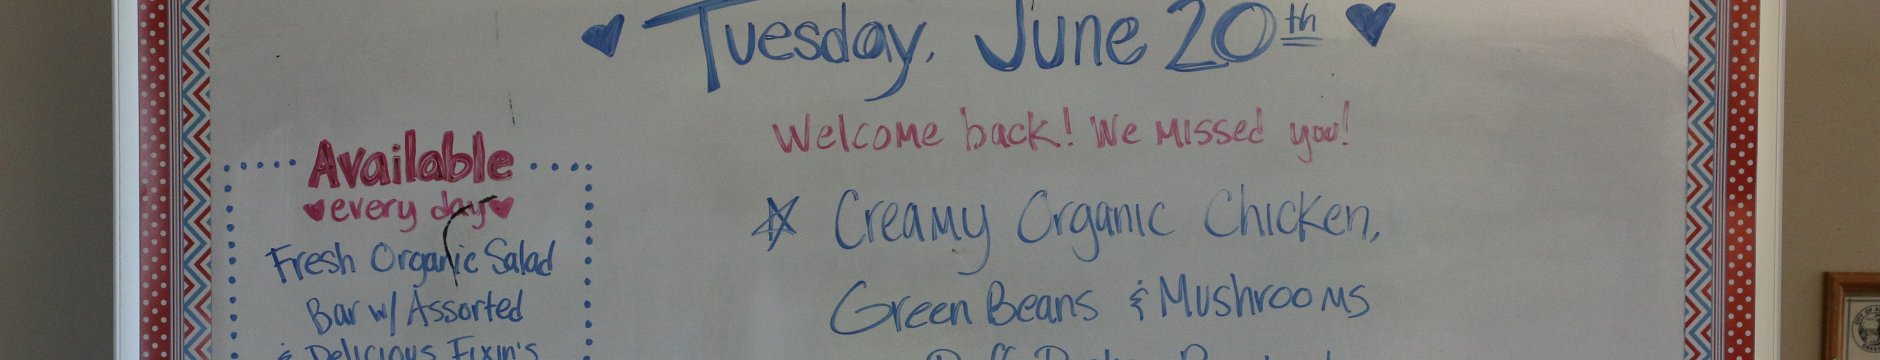 Tuesday, June 20th
Welcome back! We missed you!
Available
every day
Fresh Organic Salad
Bar w/ Assorted
& Delicious Fixin's
Creamy Organic Chicken,
Green Beans & Mushrooms